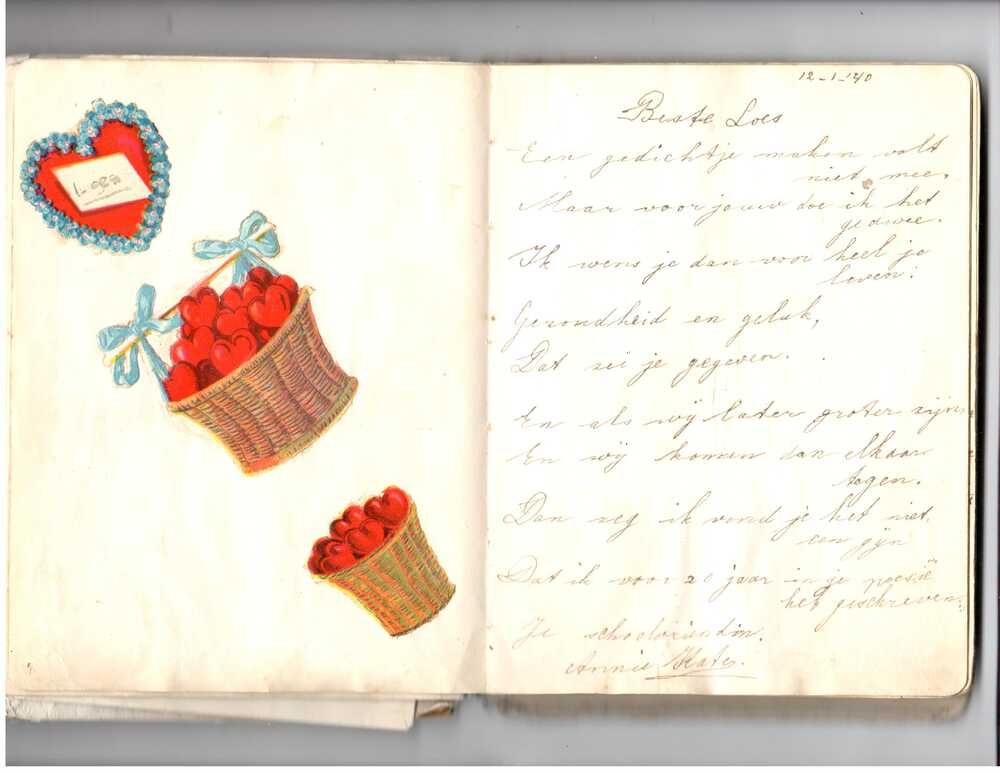 12-1-'40
Beste Loes
Een gedichtje maken valt
niet mee.
Maar voor jouw doe ik het
gedwee.
Ik wens je dan voor heel je
leven:
Gezondheid en geluk,
Dat zei je gegeven.
En als wij later groter zijn
En wij komen dan elkaar
tegen.
Dan zeg ik vond je het niet
een gijn
Dat ik voor 20 jaar in je poesië
het geschreven.
Je schoolvriendin.
Annie